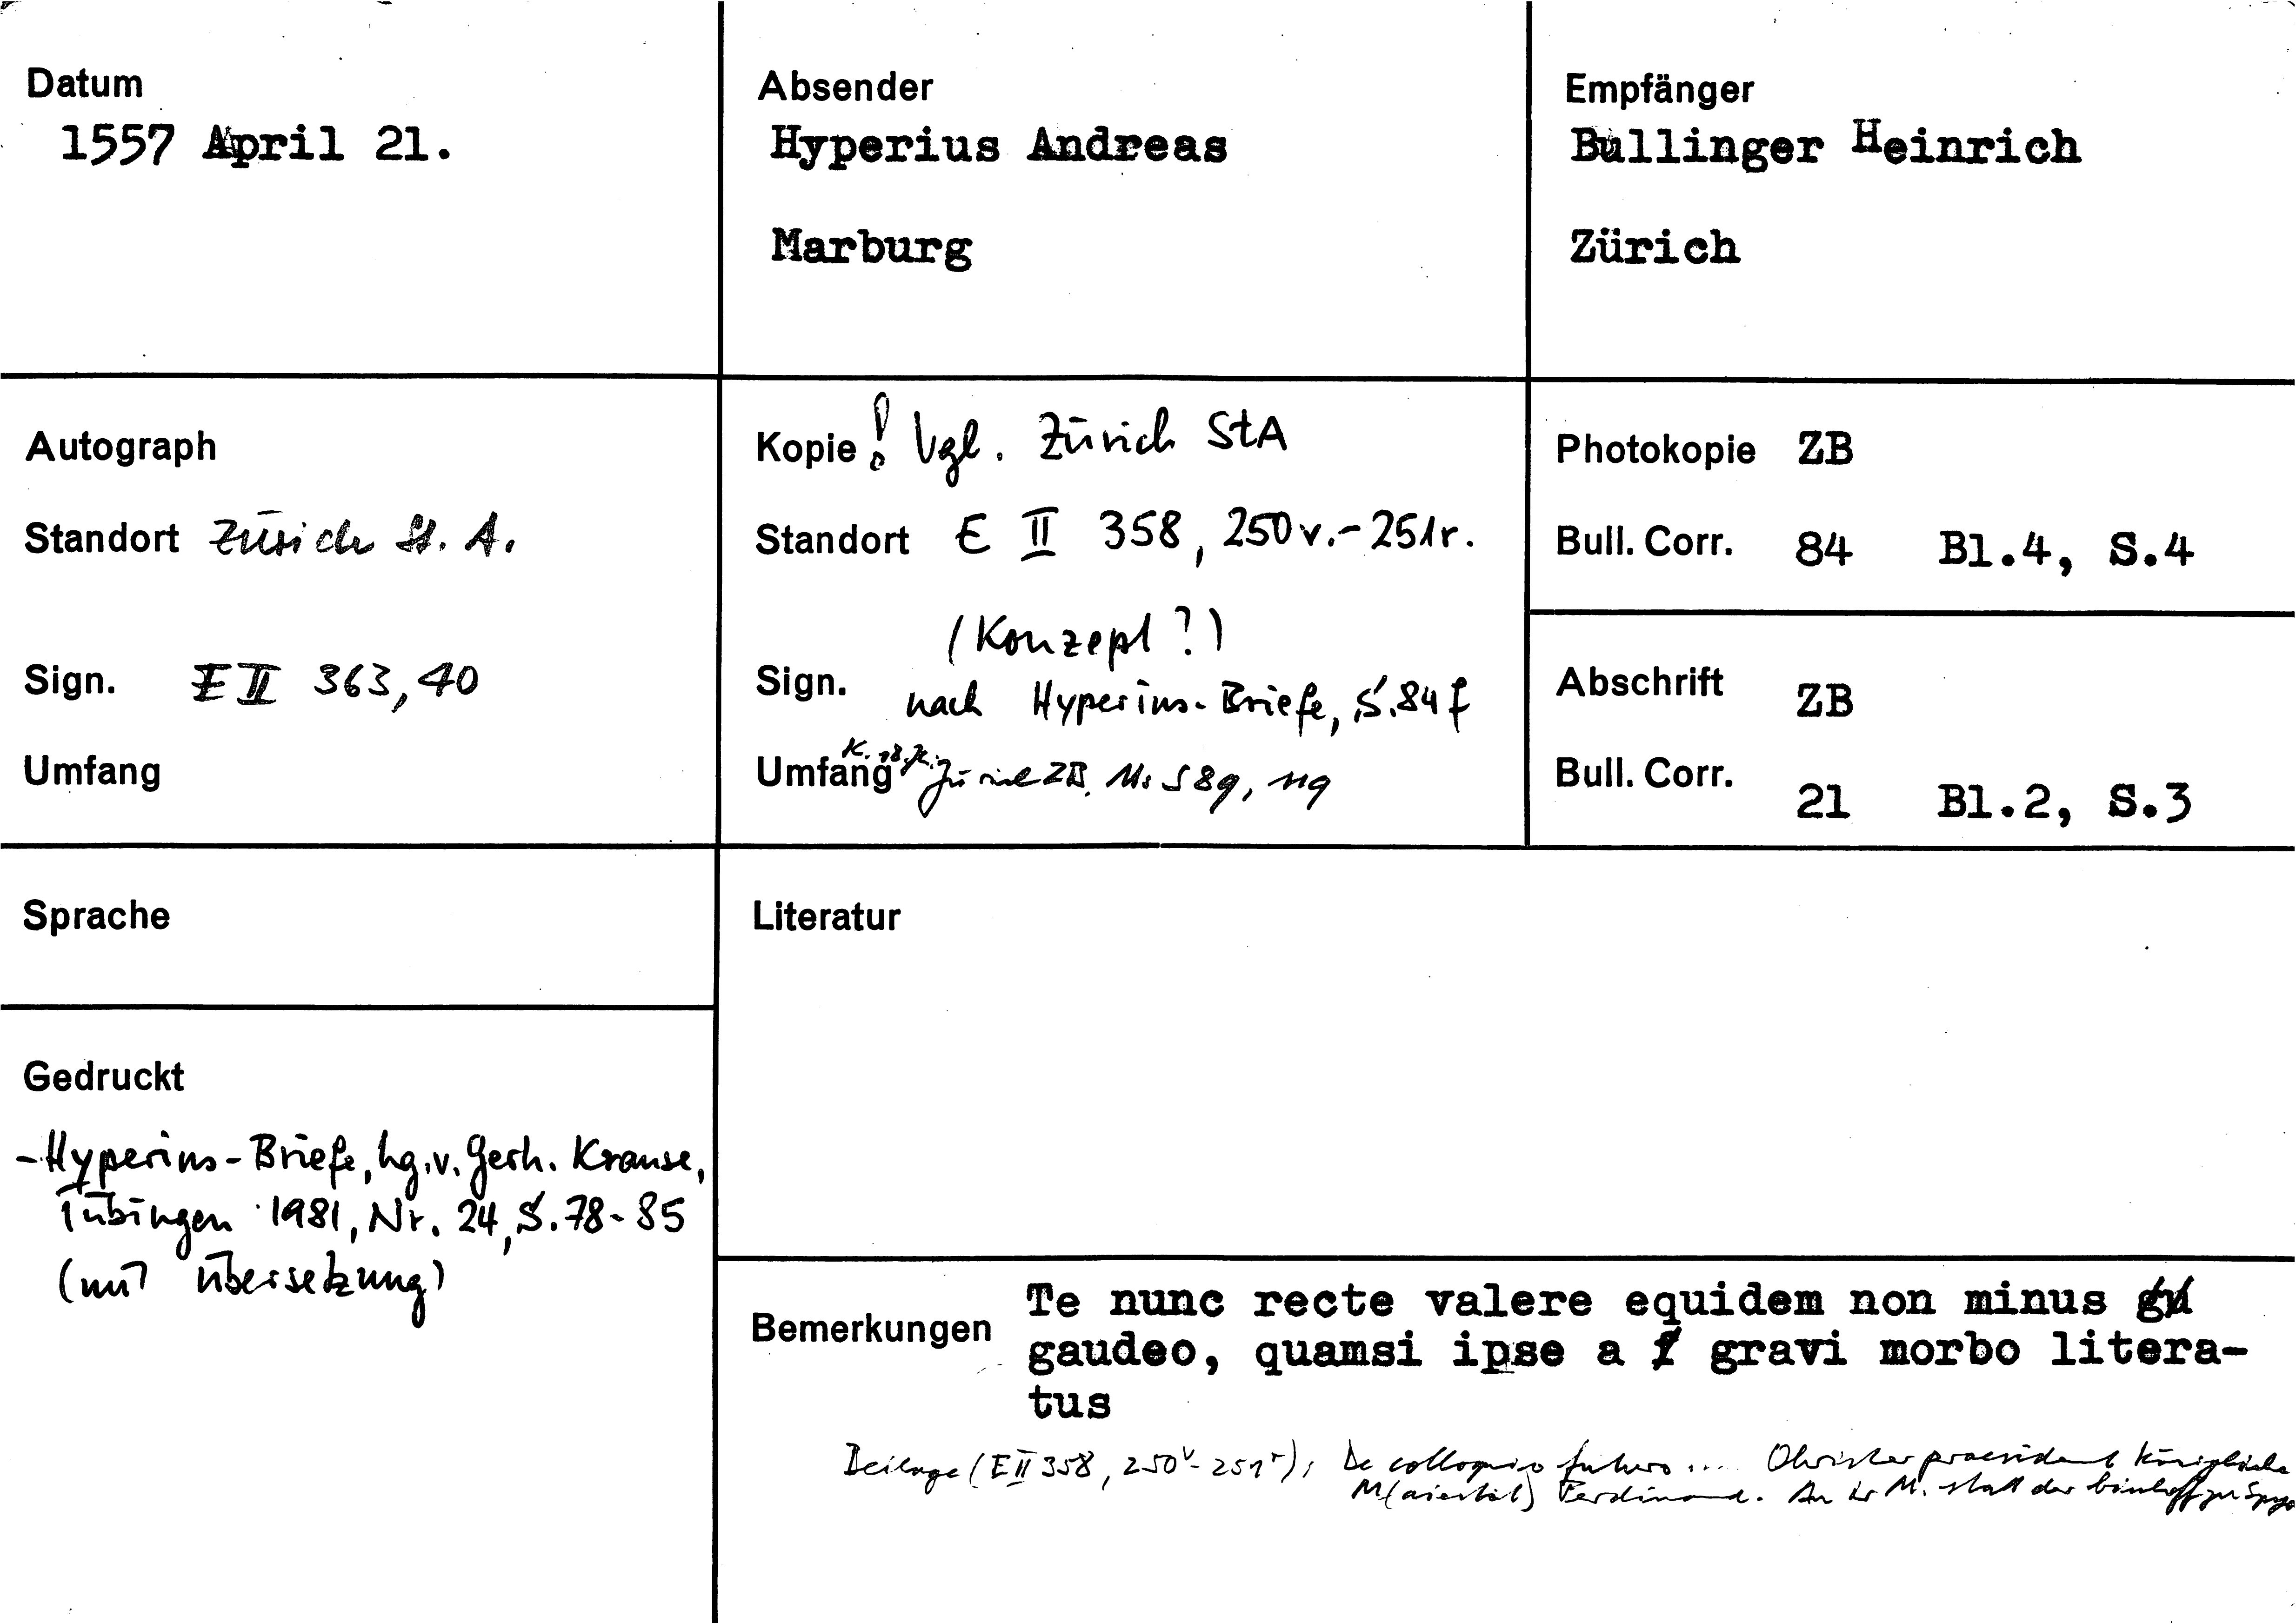 Datum
1557 April 21.
Absender
Hyperius Andreas
Marburg
Empfänger
Bullinger Heinrich
Zürich
Autograph
Standort Zürich St. A.
Sign. E II 363, 40
Umfang
Kopie ! Vgl. Zürich StA
Standort E II 358, 250v.-251r.
(Konzept?)
Sign. nach Hyperius-Briefe, S. 84 f
Umfang Zürich ZB, Ms S 89, 119
Photokopie ZB
Bull. Corr. 84 Bl.4, S.4
Abschrift ZB
Bull. Corr. 21 Bl.2, S.3
Sprache
Literatur
Gedruckt
- Hyperius-Briefe, hg. v. Gerh. Krause,
Tübingen 1981, Nr. 24, S. 78-85
(mit Übersetzung)
Bemerkungen
Te nunc recte valere equidem non minus
gaudeo, quamsi ipse a gravi morbo litera-
tus
Beilage (E II 358, 250v-251r): De colloquio futuro .... Obrister praesident königliche
M(aiestät) Ferdinand. An ir M. statt der bischoff zu